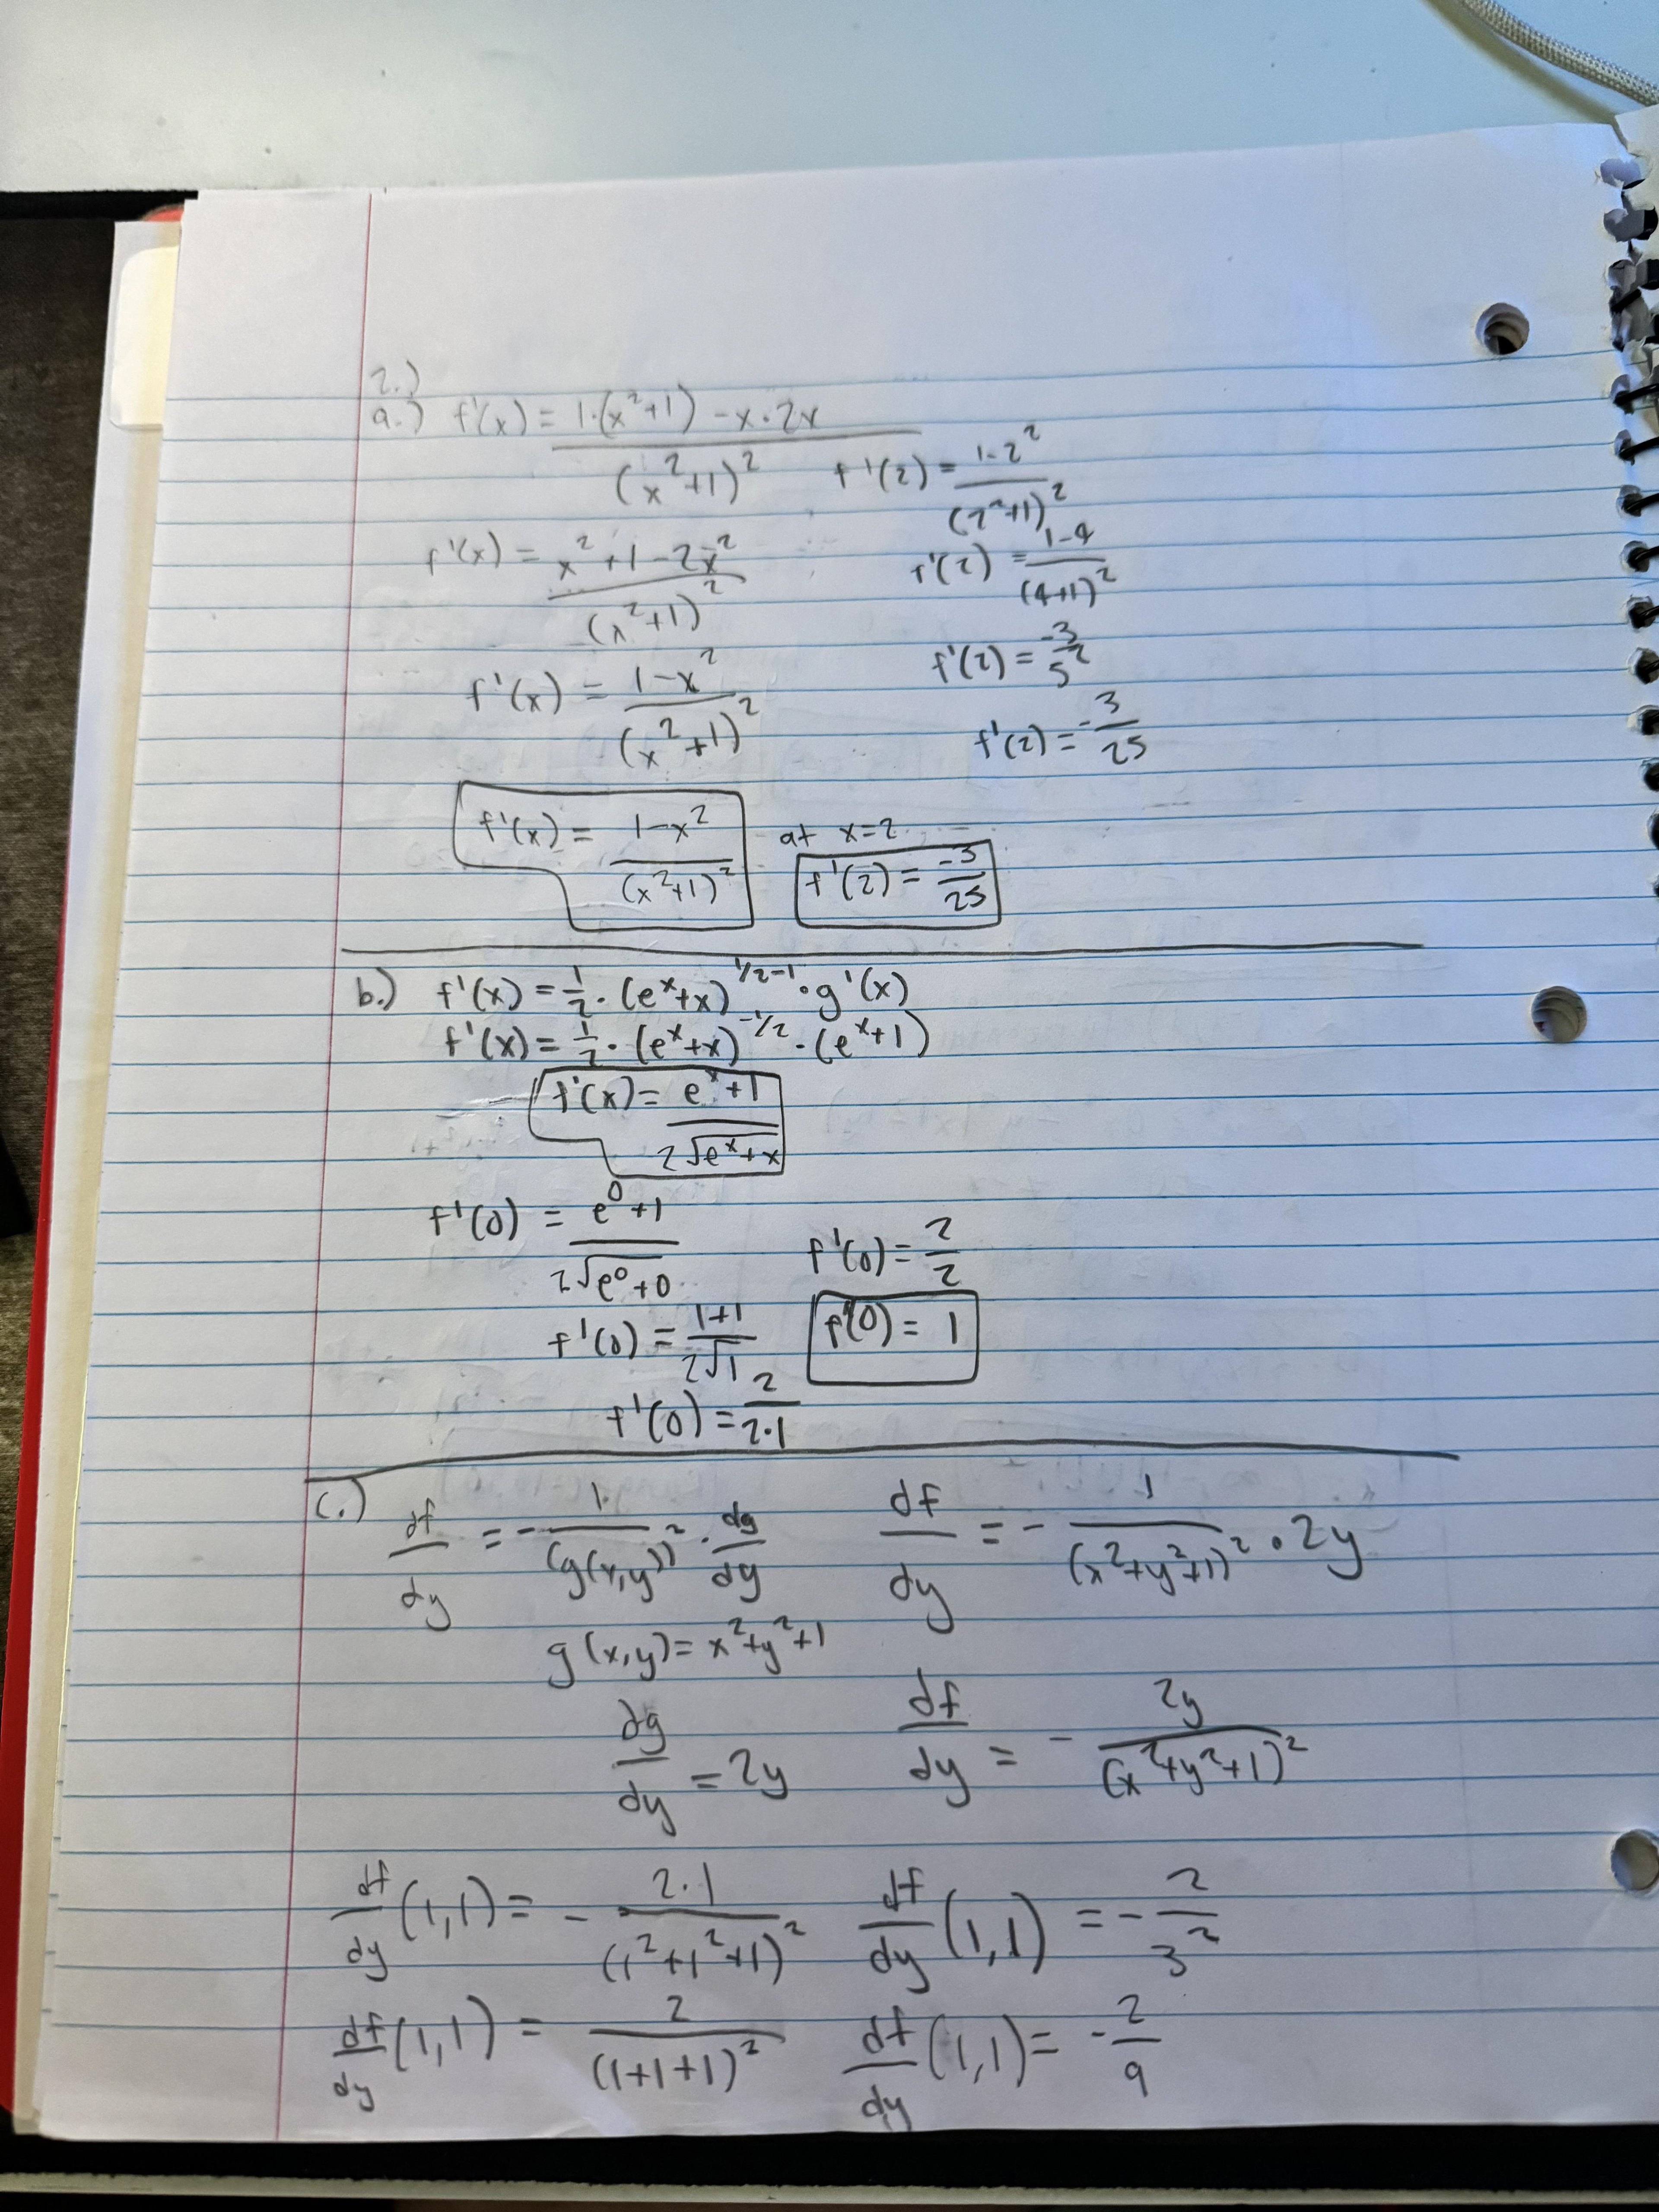 2.)
a.) f'(x) = 1·(x²+1) - x·2x / (x²+1)²
f'(x) = x²+1-2x² / (x²+1)²
f'(x) = 1-x² / (x²+1)²
f'(2) = 1-2² / (2²+1)²
f'(2) = 1-4 / (4+1)²
f'(2) = -3 / 5²
f'(2) = -3 / 25
f'(x) = 1-x² / (x²+1)² at x=2 f'(2) = -3 / 25
b.) f'(x) = 1/2 · (eˣ+x)^(1/2-1) · g'(x)
f'(x) = 1/2 · (eˣ+x)^(-1/2) · (eˣ+1)
f'(x) = eˣ+1 / 2√(eˣ+x)
f'(0) = e⁰+1 / 2√(e⁰+0)
f'(0) = 1+1 / 2√1
f'(0) = 2 / 2·1
f'(0) = 2 / 2
f'(0) = 1
c.) df/dy = - 1 / (g(x,y))² · dg/dy
g(x,y) = x²+y²+1
dg/dy = 2y
df/dy = - 1 / (x²+y²+1)² · 2y
df/dy = - 2y / (x²+y²+1)²
df/dy (1,1) = - 2·1 / (1²+1²+1)²
df/dy (1,1) = 2 / (1+1+1)²
df/dy (1,1) = - 2 / 3²
df/dy (1,1) = - 2 / 9